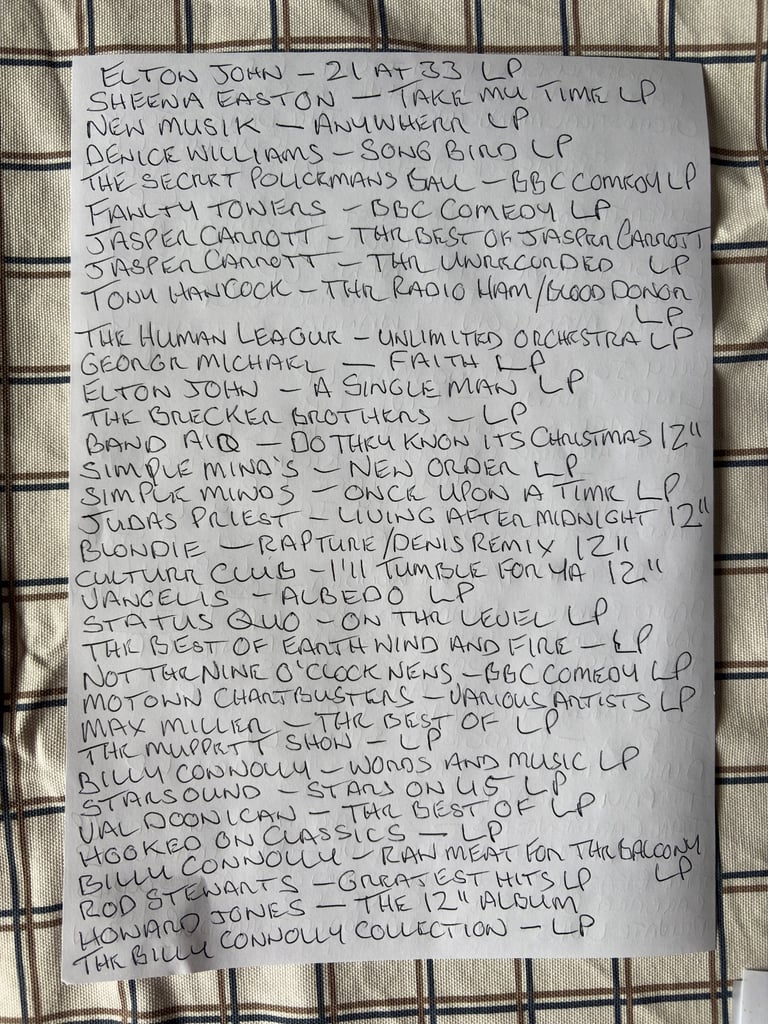 ELTON JOHN - 21 AT 33 LP
SHEENA EASTON - TAKE MY TIME LP
NEW MUSIK - ANYWHERE LP
DENICE WILLIAMS - SONG BIRD LP
THE SECRET POLICEMANS BALL - BBC COMEDY LP
FAWLTY TOWERS - BBC COMEDY LP
JASPER CARROTT - THE BEST OF JASPER CARROTT
JASPER CARROTT - THE UNRECORDED LP
TONY HANCOCK - THE RADIO HAM/BLOOD DONOR
LP
THE HUMAN LEAGUE - UNLIMITED ORCHESTRA LP
GEORGE MICHAEL - FAITH LP
ELTON JOHN - A SINGLE MAN LP
THE BRECKER BROTHERS - LP
BAND AID - DO THEY KNOW ITS CHRISTMAS 12"
SIMPLE MIND'S - NEW ORDER LP
SIMPLE MINDS - ONCE UPON A TIME LP
JUDAS PRIEST - LIVING AFTER MIDNIGHT 12"
BLONDIE - RAPTURE/DENIS REMIX 12"
CULTURE CLUB - I'll TUMBLE FOR YA 12"
VANGELIS - ALBEDO LP
STATUS QUO - ON THE LEVEL LP
THE BEST OF EARTH WIND AND FIRE - LP
NOT THE NINE O'CLOCK NEWS - BBC COMEDY LP
MOTOWN CHARTBUSTERS - VARIOUS ARTISTS LP
MAX MILLER - THE BEST OF LP
THE MUPPETT SHOW - LP
BILLY CONNOLLY - WORDS AND MUSIC LP
STARSOUND - STARS ON 45 LP
VAL DOONICAN - THE BEST OF LP
HOOKED ON CLASSICS - LP
BILLY CONNOLLY - RAW MEAT FOR THE BALCONY
LP
ROD STEWARTS - GREATEST HITS LP
HOWARD JONES - THE 12" ALBUM
THE BILLY CONNOLLY COLLECTION - LP